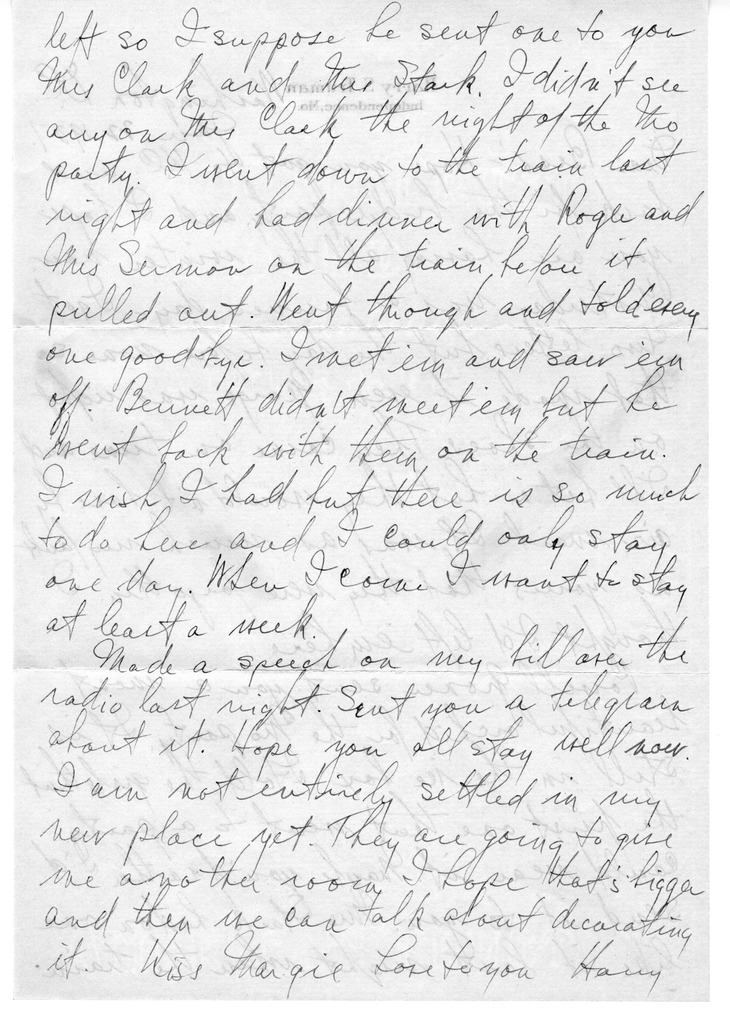 left so I suppose he sent one to you
Mrs Clark and Mrs Stark. I didn't see
any on Mrs Clark the night of the Mo
party. I went down to the train last
night and had dinner with Roger and
Mrs Sermon on the train before it
pulled out. Went through and told every
one goodbye. I met em and saw em
off. Bennett didn't meet em but he
went back with them on the train.
I wish I had but there is so much
to do here and I could only stay
one day. When I come I want to stay
at least a week.
Made a speech on my bill over the
radio last night. Sent you a telegram
about it. Hope you all stay well now.
I am not entirely settled in my
new place yet. They are going to give
me another room I hope that's bigger
and then we can talk about decorating
it. Kiss Margie Love to you Harry